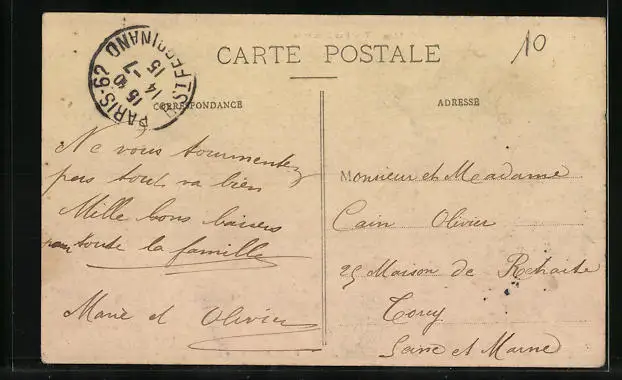 CARTE POSTALE
10
PARIS-62
15 10
14 -7
15
R. St FERDINAND
CORRESPONDANCE
ADRESSE
Ne vous tourmentez
pas tout va bien
Mille bons baisers
pour toute la famille
Marie et Olivier
Monsieur et Madame
Cain Olivier
25 Maison de Retraite
Torcy
Seine et Marne